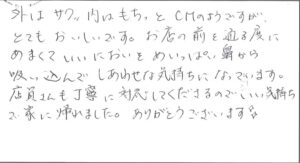 外はサクッ内はもちっとCMのようですが、
とてもおいしいです。お店の前を通る度に
めまくていいにおいをめいっぱい鼻から
吸い込んでしあわせな気持ちになっています。
店員さんも丁寧に対応してくださるのでいい気持ち
で家に帰れました。ありがとうございます